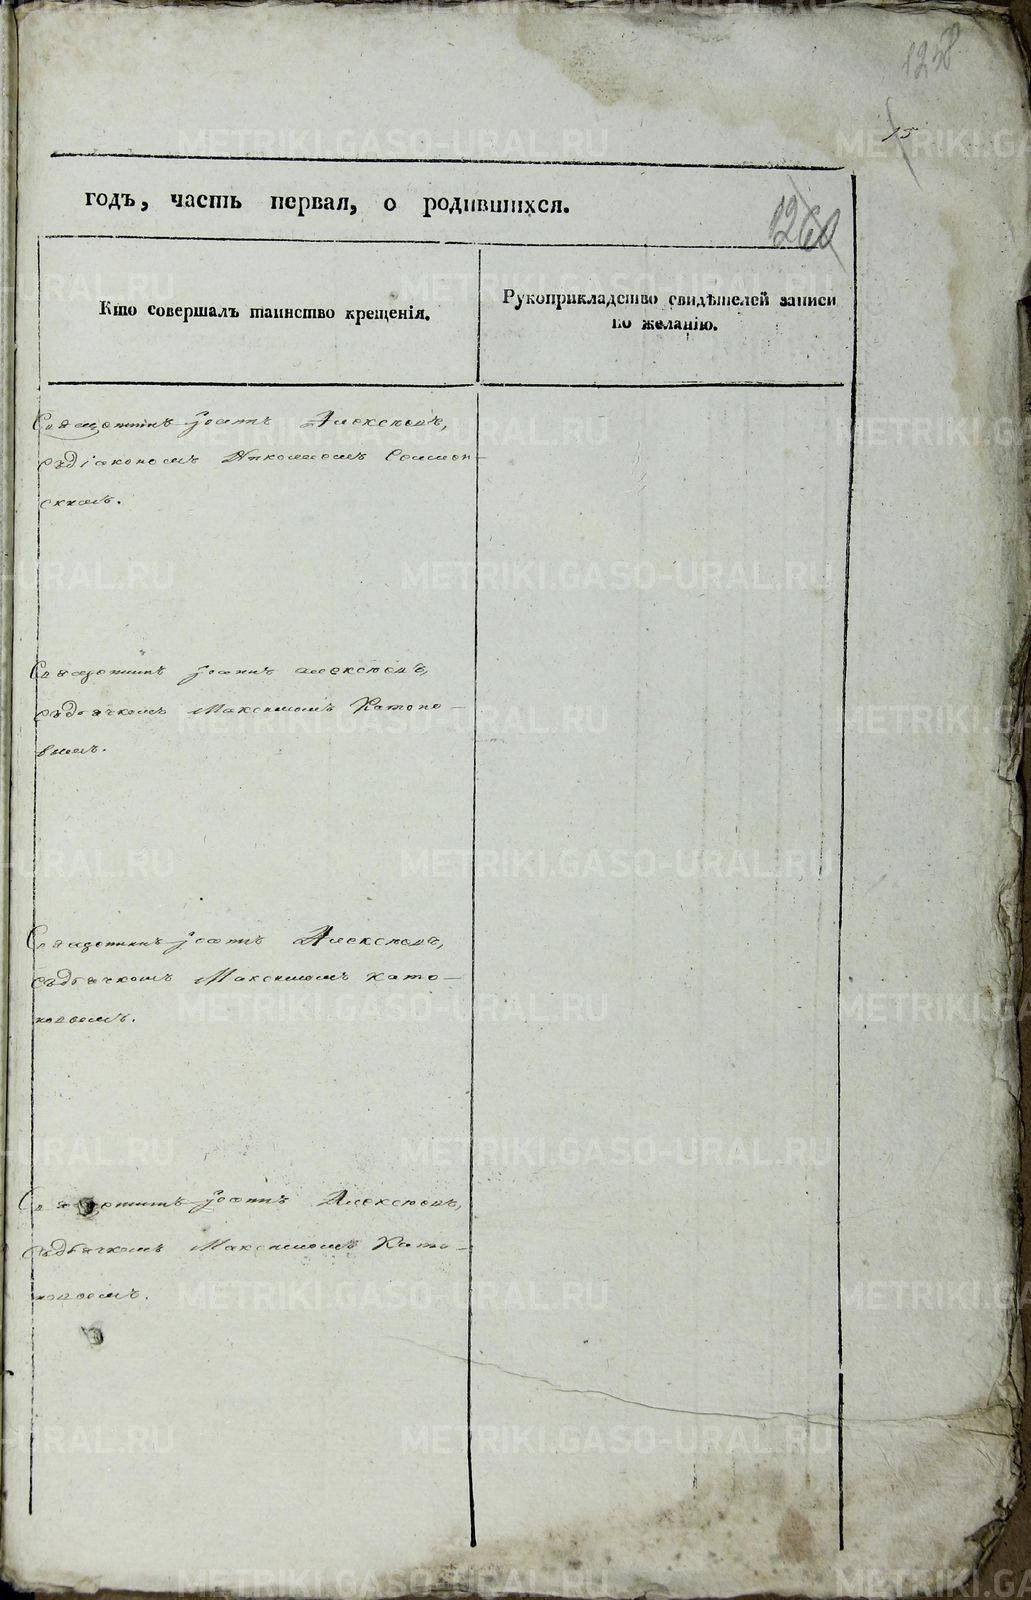 1258
15
годъ, часть первая, о родившихся.
1260
Кто совершалъ таинство крещенія.
Рукоприкладство свидѣтелей записи
по желанію.
Священникъ Іоаннъ Алексѣевъ,
съ діакономъ Николаемъ
скимъ.
Священникъ Іоаннъ Алексѣевъ,
съ дьячкомъ Максимомъ Катопо-
вымъ.
Священникъ Іоаннъ Алексѣевъ,
съ дьячкомъ Максимомъ Като-
Священникъ Іоаннъ Алексѣевъ,
съ дьячкомъ Максимомъ Като-
METRIKI.GASO-URAL.RU